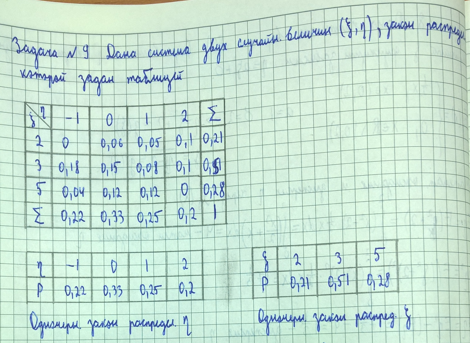 Задача №9 Дана система двух случайн. величин (ξ, η), закон распреде
которой задан таблицей
ξ η -1 0 1 2 Σ
2 0 0,06 0,05 0,1 0,21
3 0,18 0,15 0,08 0,1 0,51
5 0,04 0,12 0,12 0 0,28
Σ 0,22 0,33 0,25 0,2 1
η -1 0 1 2
P 0,22 0,33 0,25 0,2
ξ 2 3 5
P 0,21 0,51 0,28
Одномерн. закон распредел. η
Одномерн. закон распред. ξ